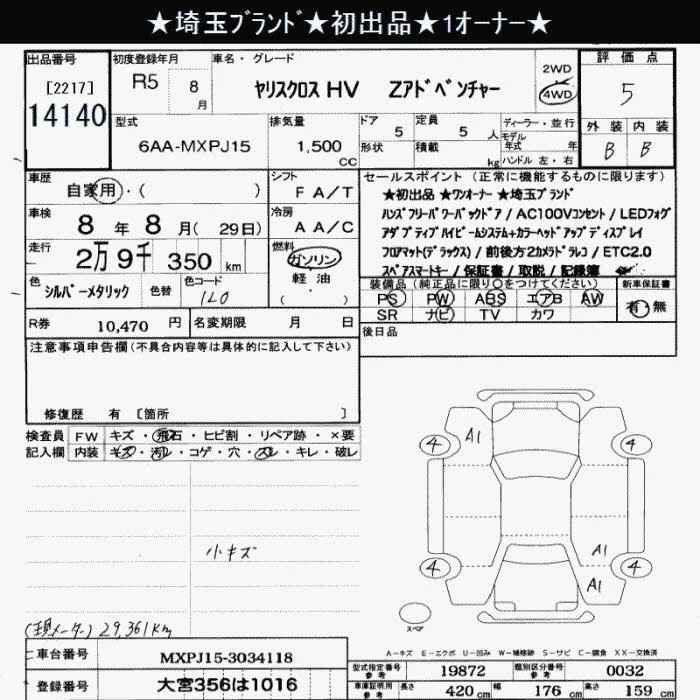 ★埼玉ﾌﾞﾗﾝﾄﾞ★初出品★1オーナー★
出品番号
[2217]
14140
初度登録年月
R5
8
月
車名・グレード
ヤリスクロス HV Zアドベンチャー
2WD
4WD
評価点
5
外装 内装
B B
型式
6AA-MXPJ15
排気量
1,500
CC
ドア
5
形状
定員
5 人
積載
kg
ディーラー・並行
モデル
年式 年
ハンドル 左・右
車歴
自家用・( )
シフト
F A/T
車検
8 年 8 月 ( 29日)
冷房
A A/C
走行
2万 9千 350 km
燃料
ガソリン
軽油
( ・ )
色
シルバーメタリック
色替
色コード
1L0
R券 10,470 円
名変期限 月 日
セールスポイント (正常に機能するものに限ります)
★初出品 ★ワンオーナー ★埼玉ブランド
ハンズフリーパワーバックドア / AC100Vコンセント / LEDフォグ
アダプティブハイビームシステム+カラーヘッドアップディスプレイ
フロアマット(デラックス) / 前後方2カメラドラレコ / ETC2.0
スペアスマートキー / 保証書 / 取説 / 記録簿
装備品 (純正品に限り○をつけてください)
PS PW ABS エアB AW
SR ナビ TV カワ
新車保証書
有・無
後日品
注意事項申告欄 (不具合内容等は具体的に記入して下さい)
修復歴 有 [箇所 ]
検査員
記入欄
FW キズ・飛石・ヒビ割・リペア跡・×要
内装 キズ・汚レ・コゲ・穴・スレ・キレ・破レ
小キズ
(現メーター) 29,361km
4 A1 4
A1
4 A1 4
スペア
A-キズ E-エクボ U-凹み W-補修跡 S-サビ C-腐食 XX-交換済
車台番号 MXPJ15-3034118
登録番号 大宮356は1016
型式指定番号
参考
19872
類別区分番号
参考
0032
車庫証明用
参考
長さ 420 cm
幅 176 cm
高さ 159 cm